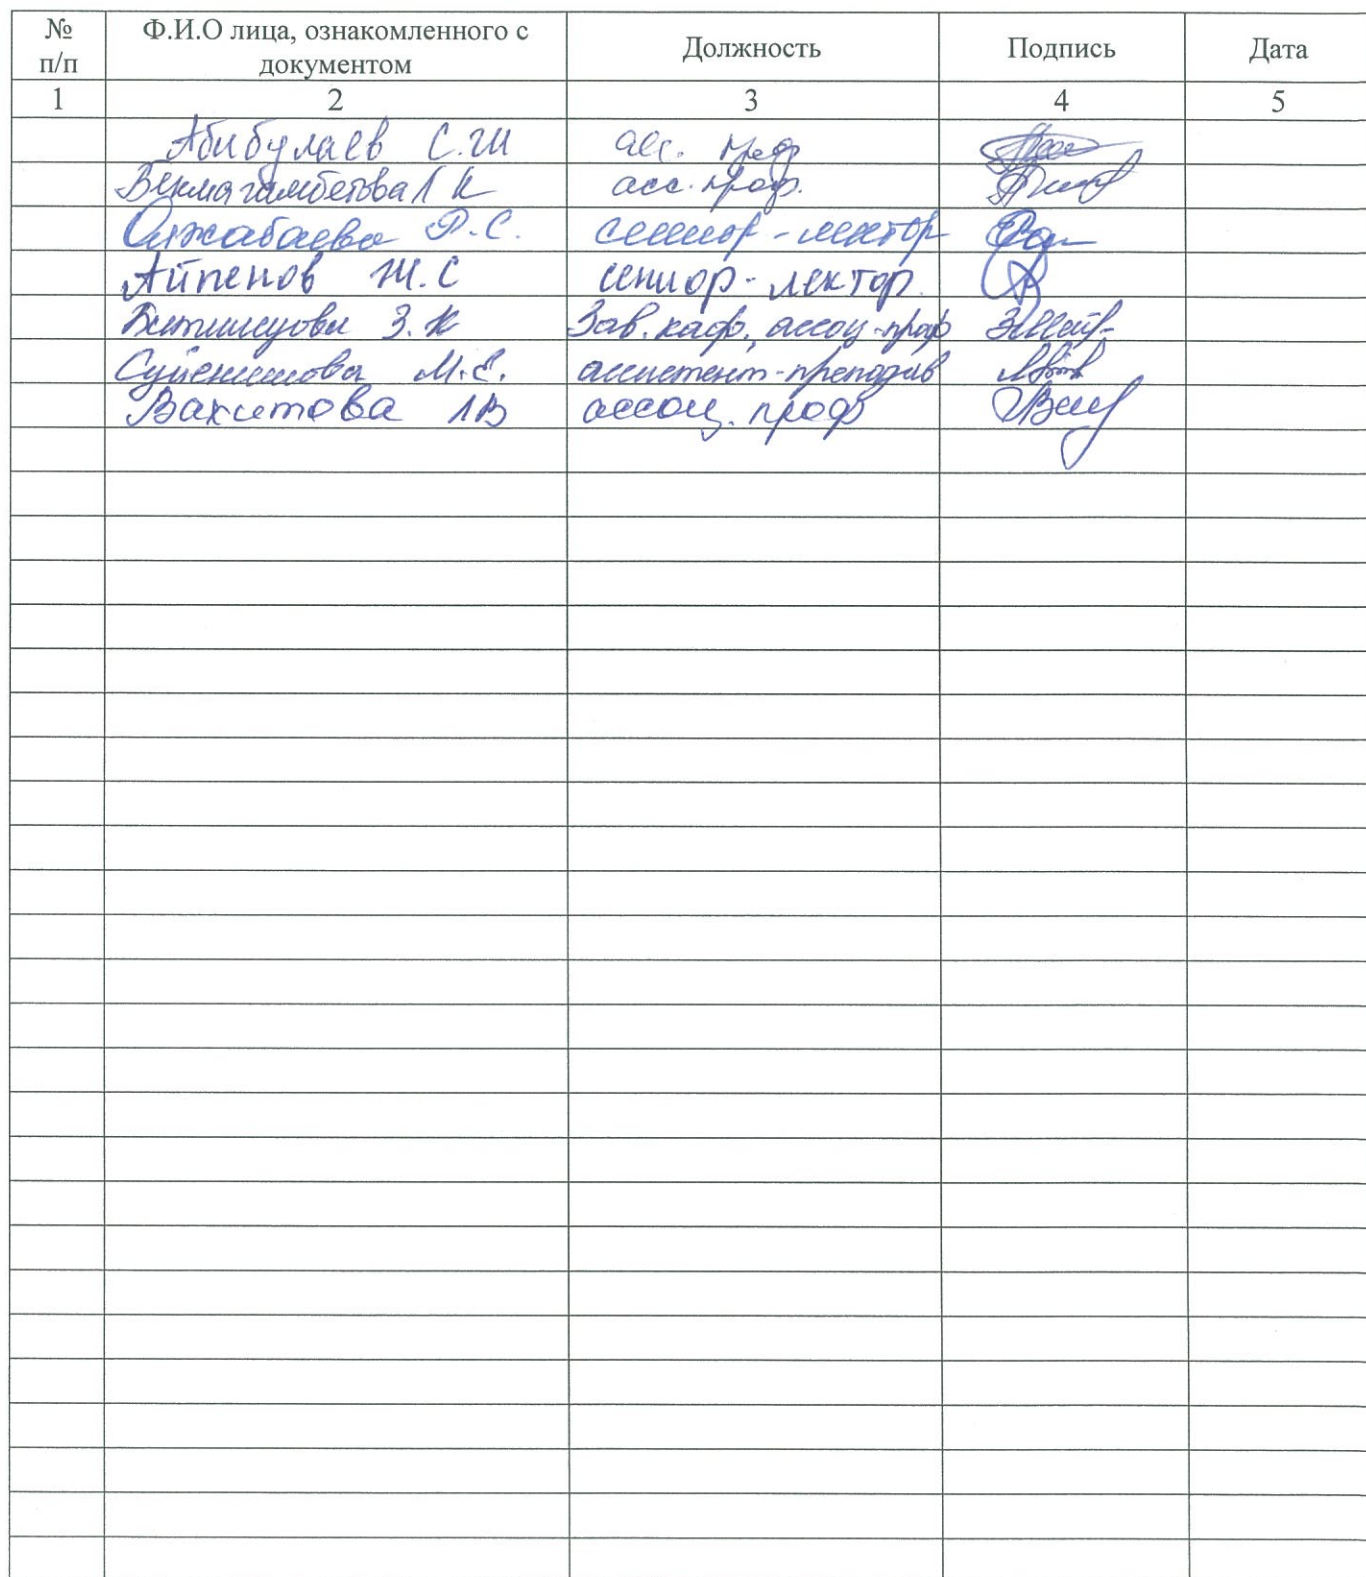 № п/п Ф.И.О лица, ознакомленного с документом Должность Подпись Дата
1 2 3 4 5
Абибулаев С.Ш асс. проф
Бекмагамбетова Г К асс. проф.
Ожабаева Р.С. сениор-лектор
Айпенов Ж.С сениор-лектор.
З.К Зав. каф., ассоц-проф
Суйенишова М.Е. ассистент-преподав
Вахитова ЛВ ассоц. проф